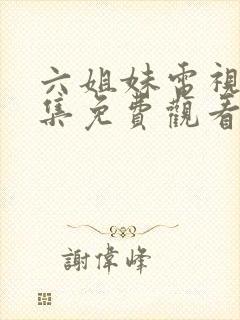 六姐妹電視
集免費觀看
謝偉峰